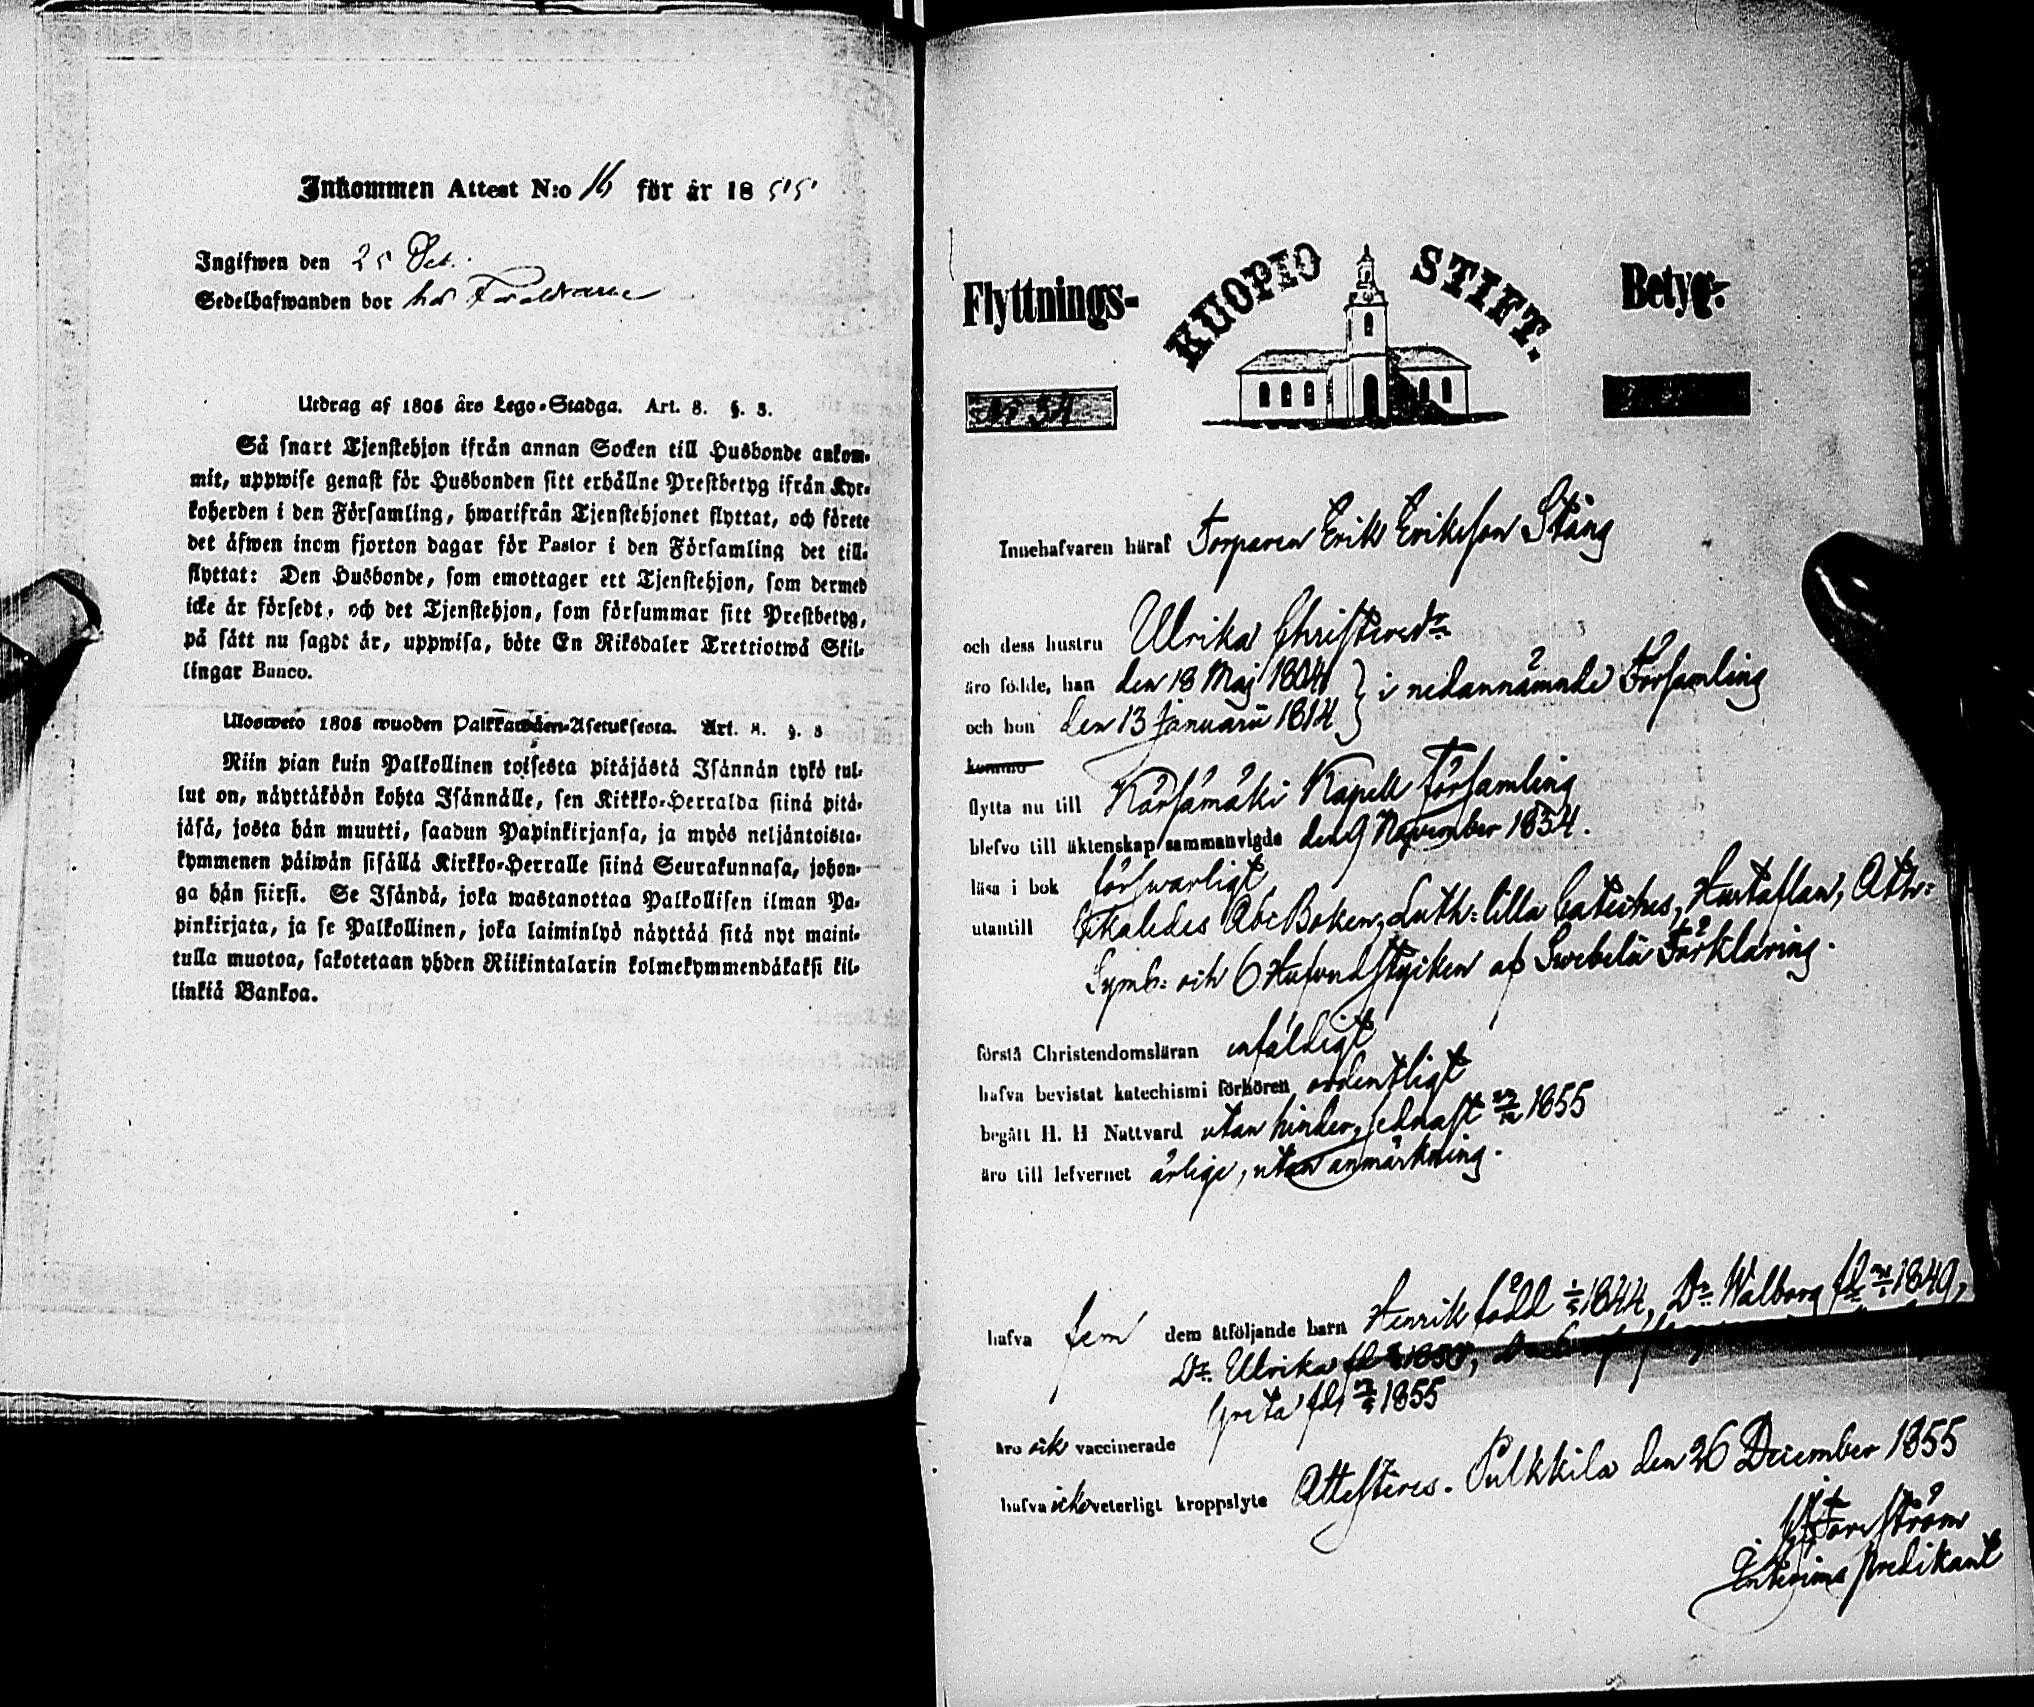 Inkommen Attest N:o 16 för år 1855
Ingifwen den 25 Oct.
Sedelhafwanden bor hos Föräldrarne
Utdrag af 1805 års Lego-Stadga. Art. 8. §. 3.
Så snart Tjenstehjon ifrån annan Socken till Husbonde ankom-
mit, uppwise genast för Husbonden sitt erhållne Prestbetyg ifrån Kyr-
koherden i den Församling, hwarifrån Tjenstehjonet flyttat, och förete
det äfwen inom fjorton dagar för Pastor i den Församling det till-
flyttat: Den Husbonde, som emottager ett Tjenstehjon, som dermed
icke är försedt, och det Tjenstehjon, som försummar sitt Prestbetyg,
på sätt nu sagdt är, uppwisa, böte En Riksdaler Trettiotwå Skil-
lingar Banco.
Ulosweto 1805 wuoden Palkkawäen-Asetuksesta. Art. 8. §. 3
Niin pian kuin Palkollinen toisesta pitäjästä Isännän tykö tul-
lut on, näyttäköön kohta Isännälle, sen Kirkko-Herralda siinä pitä-
jäsä, josta hän muutti, saadun Papinkirjansa, ja myös neljäntoista-
kymmenen päiwän sisällä Kirkko-Herralle siinä Seurakunnasa, johon-
ga hän siirsi. Se Isändä, joka wastanottaa Palkollisen ilman Pa-
pinkirjata, ja se Palkollinen, joka laiminlyö näyttää sitä nyt maini-
tulla muotoa, sakotetaan yhden Riikintalarin kolmekymmendäkaksi kil-
linkiä Bankoa.
Flyttnings- KUOPIO STIFT. Betyg.
No 34
Innehafvaren häraf Torparen Erik Eriksson Stång
och dess hustru Ulrika Christersdr
äro födde, han den 18 Maj 1804 } i nedannämnde Församling
och hon den 13 Januarii 1814
komma
flytta nu till Kärsämäki Kapell Församling
blefvo till äktenskap sammanvigde den 9 November 1834.
läsa i bok försvarligt
utantill Skaledes Abc Boken, Luth: lilla Cateches, Hustaflan, Ath:
Symb: och 6 Hufvudstycken af Svebelii Förklaring.
förstå Christendomsläran enfäldigt
hafva bevistat katechismi förhören ordentligt
begått H. H Nattvard utan hinder, sednast 1855
äro till lefvernet ärlige, utan anmärkning.
hafva fem dem åtföljande barn Henrik född 1844, Dr Walborg fd 1849,
Dr Ulrika
Greta fd 1855
äro ock vaccinerade
hafva icke veterligt kroppslyte Attesteras. Pulkkila den 26 December 1855
Forsström
Interims predikant